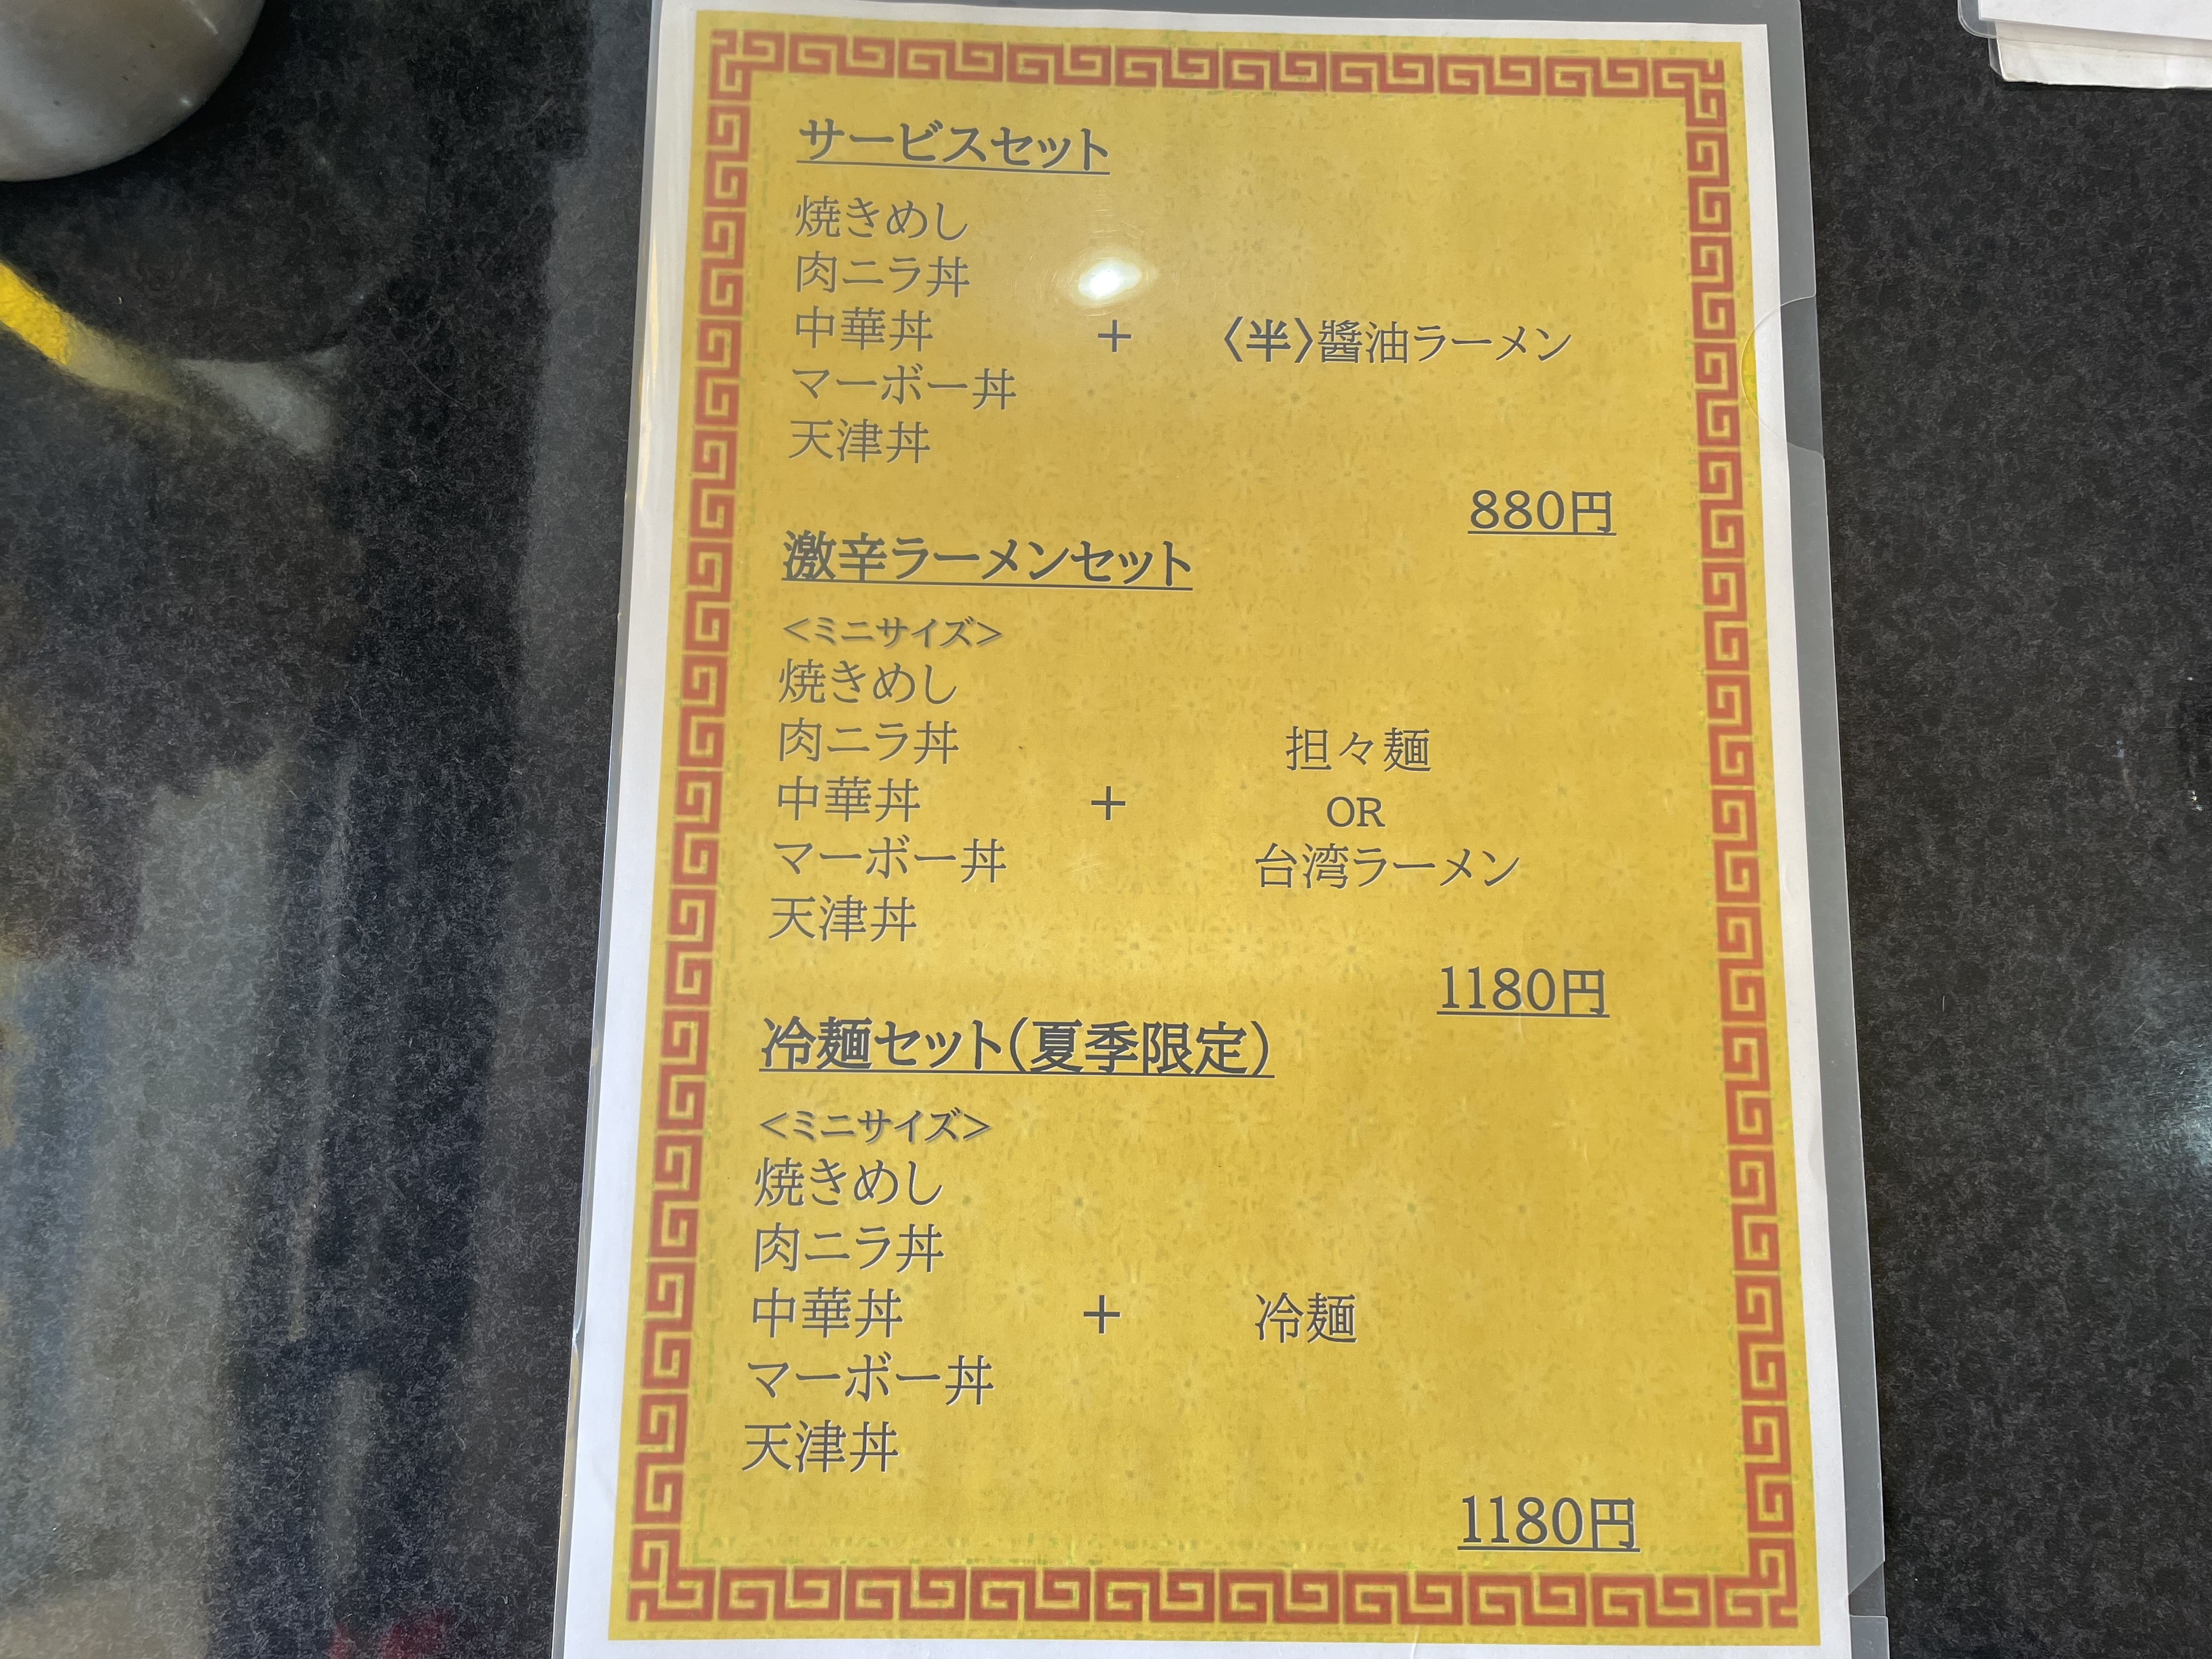 サービスセット
焼きめし
肉ニラ丼
中華丼 + 〈半〉醬油ラーメン
マーボー丼
天津丼
880円
激辛ラーメンセット
<ミニサイズ>
焼きめし
肉ニラ丼
担々麺
中華丼 + OR
マーボー丼 台湾ラーメン
天津丼
1180円
冷麺セット(夏季限定)
<ミニサイズ>
焼きめし
肉ニラ丼
中華丼 + 冷麺
マーボー丼
天津丼
1180円